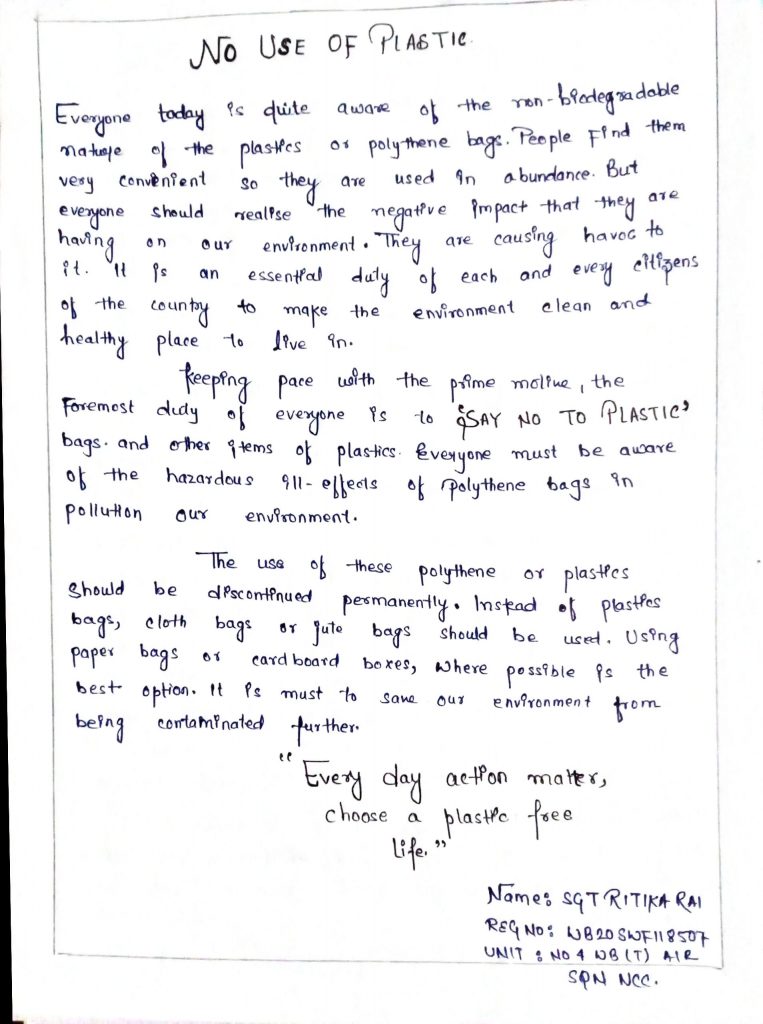 NO USE OF PLASTIC
Everyone today is quite aware of the non-biodegradable
nature of the plastics or polythene bags. People Find them
very convenient so they are used in abundance. But
everyone should realise the negative impact that they are
having on our environment. They are causing havoc to
it. It is an essential duty of each and every citizens
of the country to make the environment clean and
healthy place to live in.
Keeping pace with the prime motive, the
Foremost duty of everyone is to 'SAY NO TO PLASTIC'
bags. and other items of plastics. Everyone must be aware
of the hazardous ill-effects of polythene bags in
pollution our environment.
The use of these polythene or plastics
should be discontinued permanently. Instead of plastics
bags, cloth bags or jute bags should be used. Using
paper bags or card board boxes, where possible is the
best option. It is must to save our environment from
being contaminated further.
"Every day action matter,
choose a plastic free
life."
Name: SGT RITIKA RAI
REG NO: WB20SWF118507
UNIT : NO 4 WB (T) AIR
SQN NCC.